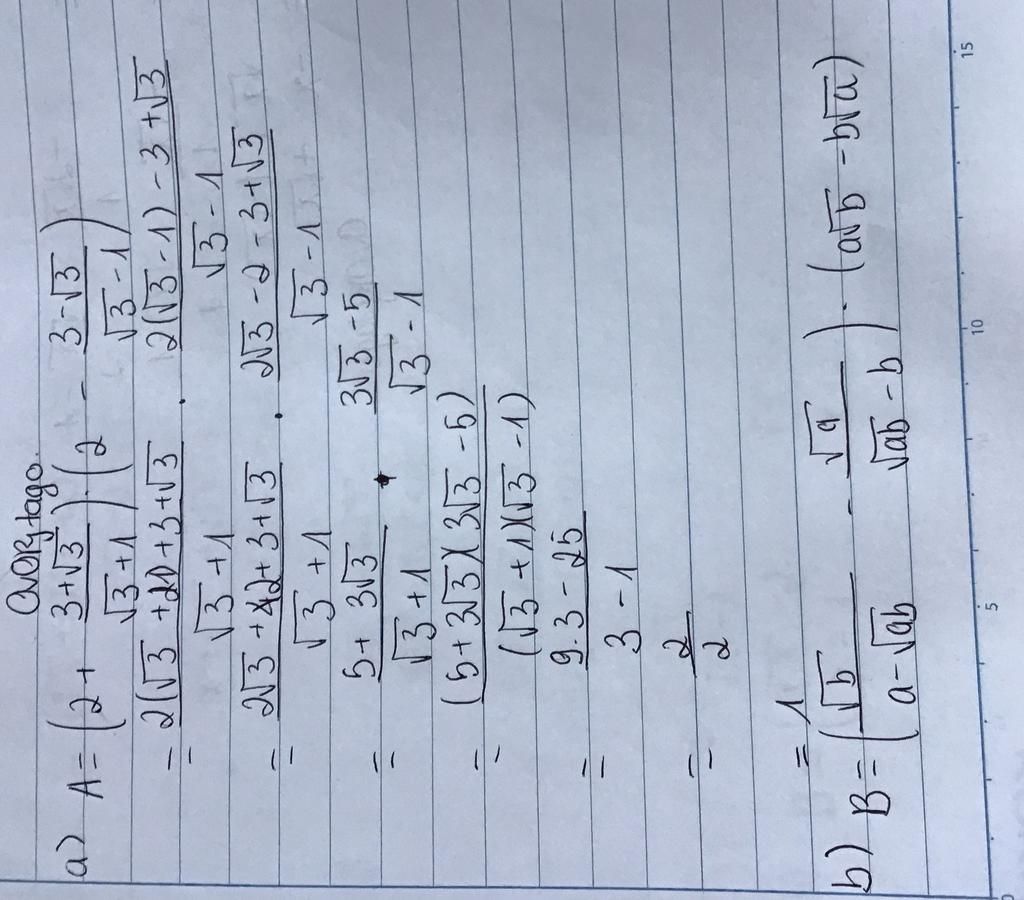 Ơ VƠRytago.
a) A = (2 + \frac{3+\sqrt{3}}{\sqrt{3}+1}) . (2 - \frac{3-\sqrt{3}}{\sqrt{3}-1})
= \frac{2(\sqrt{3}+1)+3+\sqrt{3}}{\sqrt{3}+1} . \frac{2(\sqrt{3}-1)-3+\sqrt{3}}{\sqrt{3}-1}
= \frac{2\sqrt{3}+2+3+\sqrt{3}}{\sqrt{3}+1} . \frac{2\sqrt{3}-2-3+\sqrt{3}}{\sqrt{3}-1}
= \frac{5+3\sqrt{3}}{\sqrt{3}+1} . \frac{3\sqrt{3}-5}{\sqrt{3}-1}
= \frac{(5+3\sqrt{3})(3\sqrt{3}-5)}{(\sqrt{3}+1)(\sqrt{3}-1)}
= \frac{9.3-25}{3-1}
= \frac{2}{2}
= 1
b) B = (\frac{\sqrt{b}}{a-\sqrt{ab}} - \frac{\sqrt{a}}{\sqrt{ab}-b}) . (a\sqrt{b} - b\sqrt{a})
5 10 15